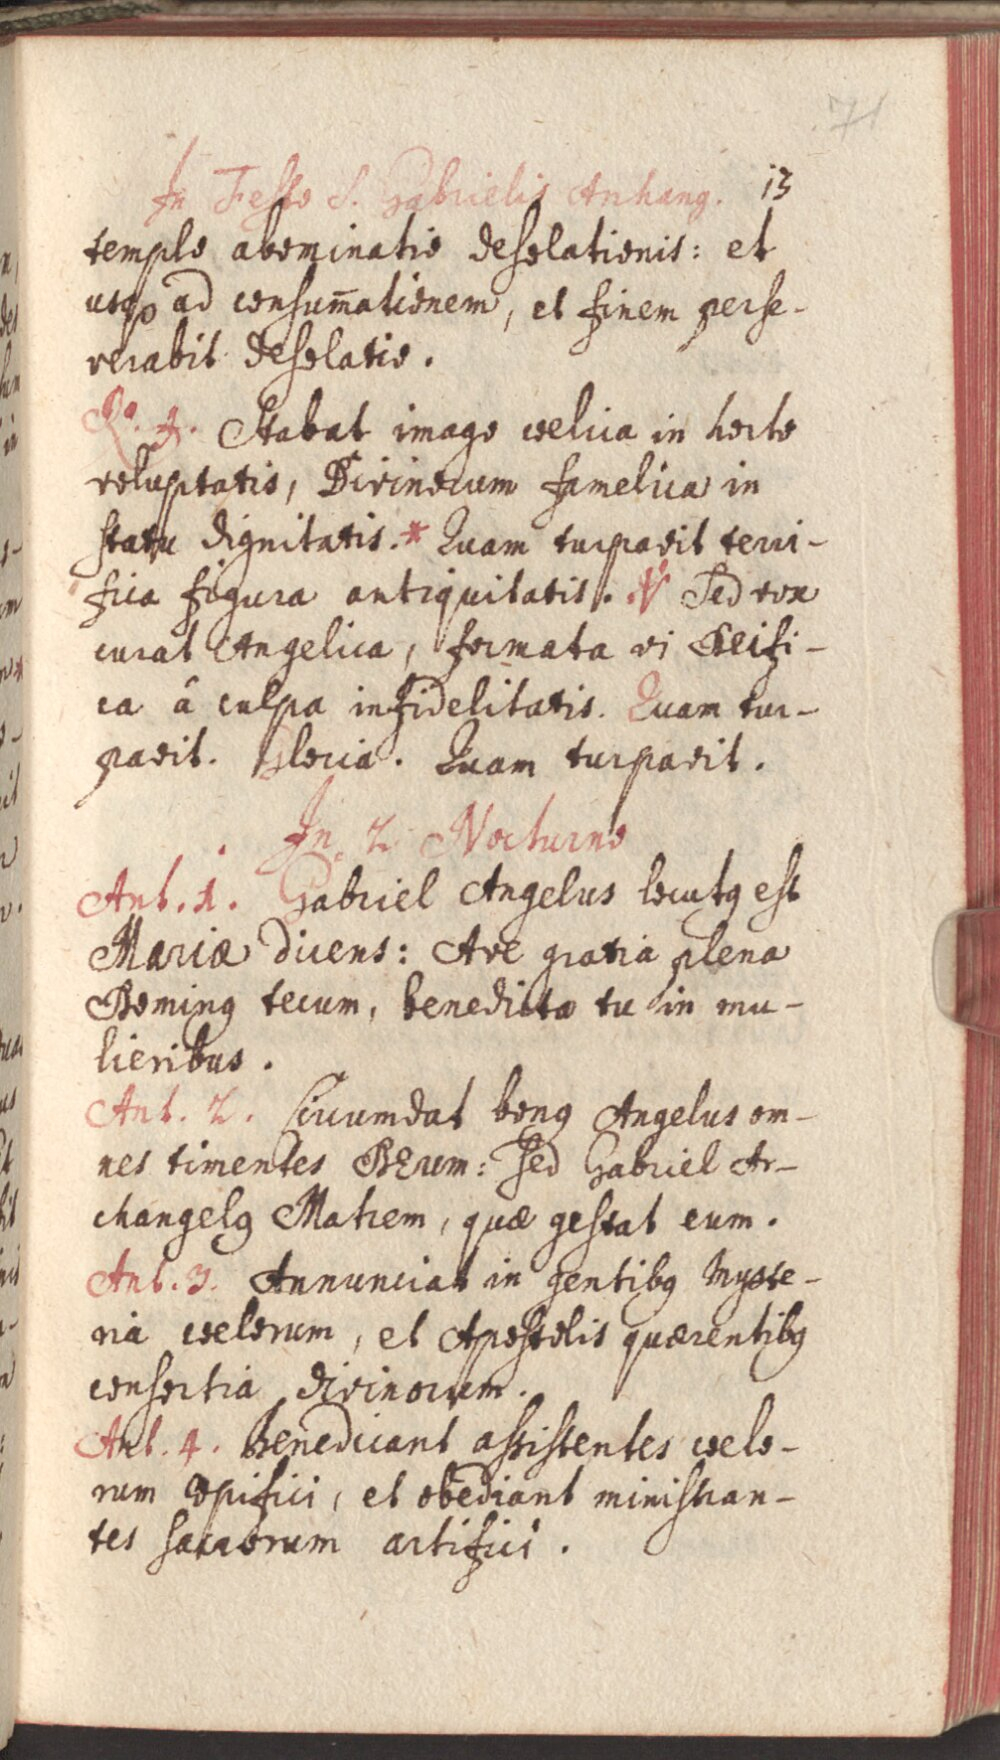 71
In Festo S. Gabrielis Anhang. 13
templo abominatio desolationis: et
usqꝫ ad consum̄ationem, et finem perse-
verabit desolatio.
R⁰. 3. Stabat imago coelica in horto
voluptatis, Divinorum famelica in
statu dignitatis.* Quam turpavit terri-
fica figura antiquitatis. ℣ Sed vox
curat Angelica, formata vi Deifi-
ca á culpa infidelitatis. Quam tur-
pavit. Gloria. Quam turpavit.
In 2 Nocturno
Ant. 1. Gabriel Angelus locutꝰ est
Mariæ dicens: Ave gratia plena
Dominꝰ tecum, benedicta tu in mu-
lieribus.
Ant. 2. Circumdat bonꝰ Angelus om-
nes timentes DEum: sed Gabriel Ar-
changelꝰ Matrem, quæ gestat eum.
Ant. 3. Annunciat in gentibꝰ myste-
ria coelorum, et Apostolis quærentibꝰ
consortia divinorum.
Ant. 4. Benedicant assistentes coelo-
rum opifici, et obediant ministran-
tes sacrorum artifici.